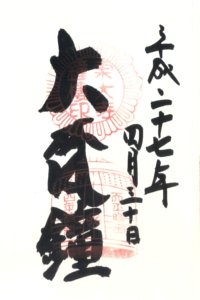 平成二十七年
四月三十日
大梵鐘